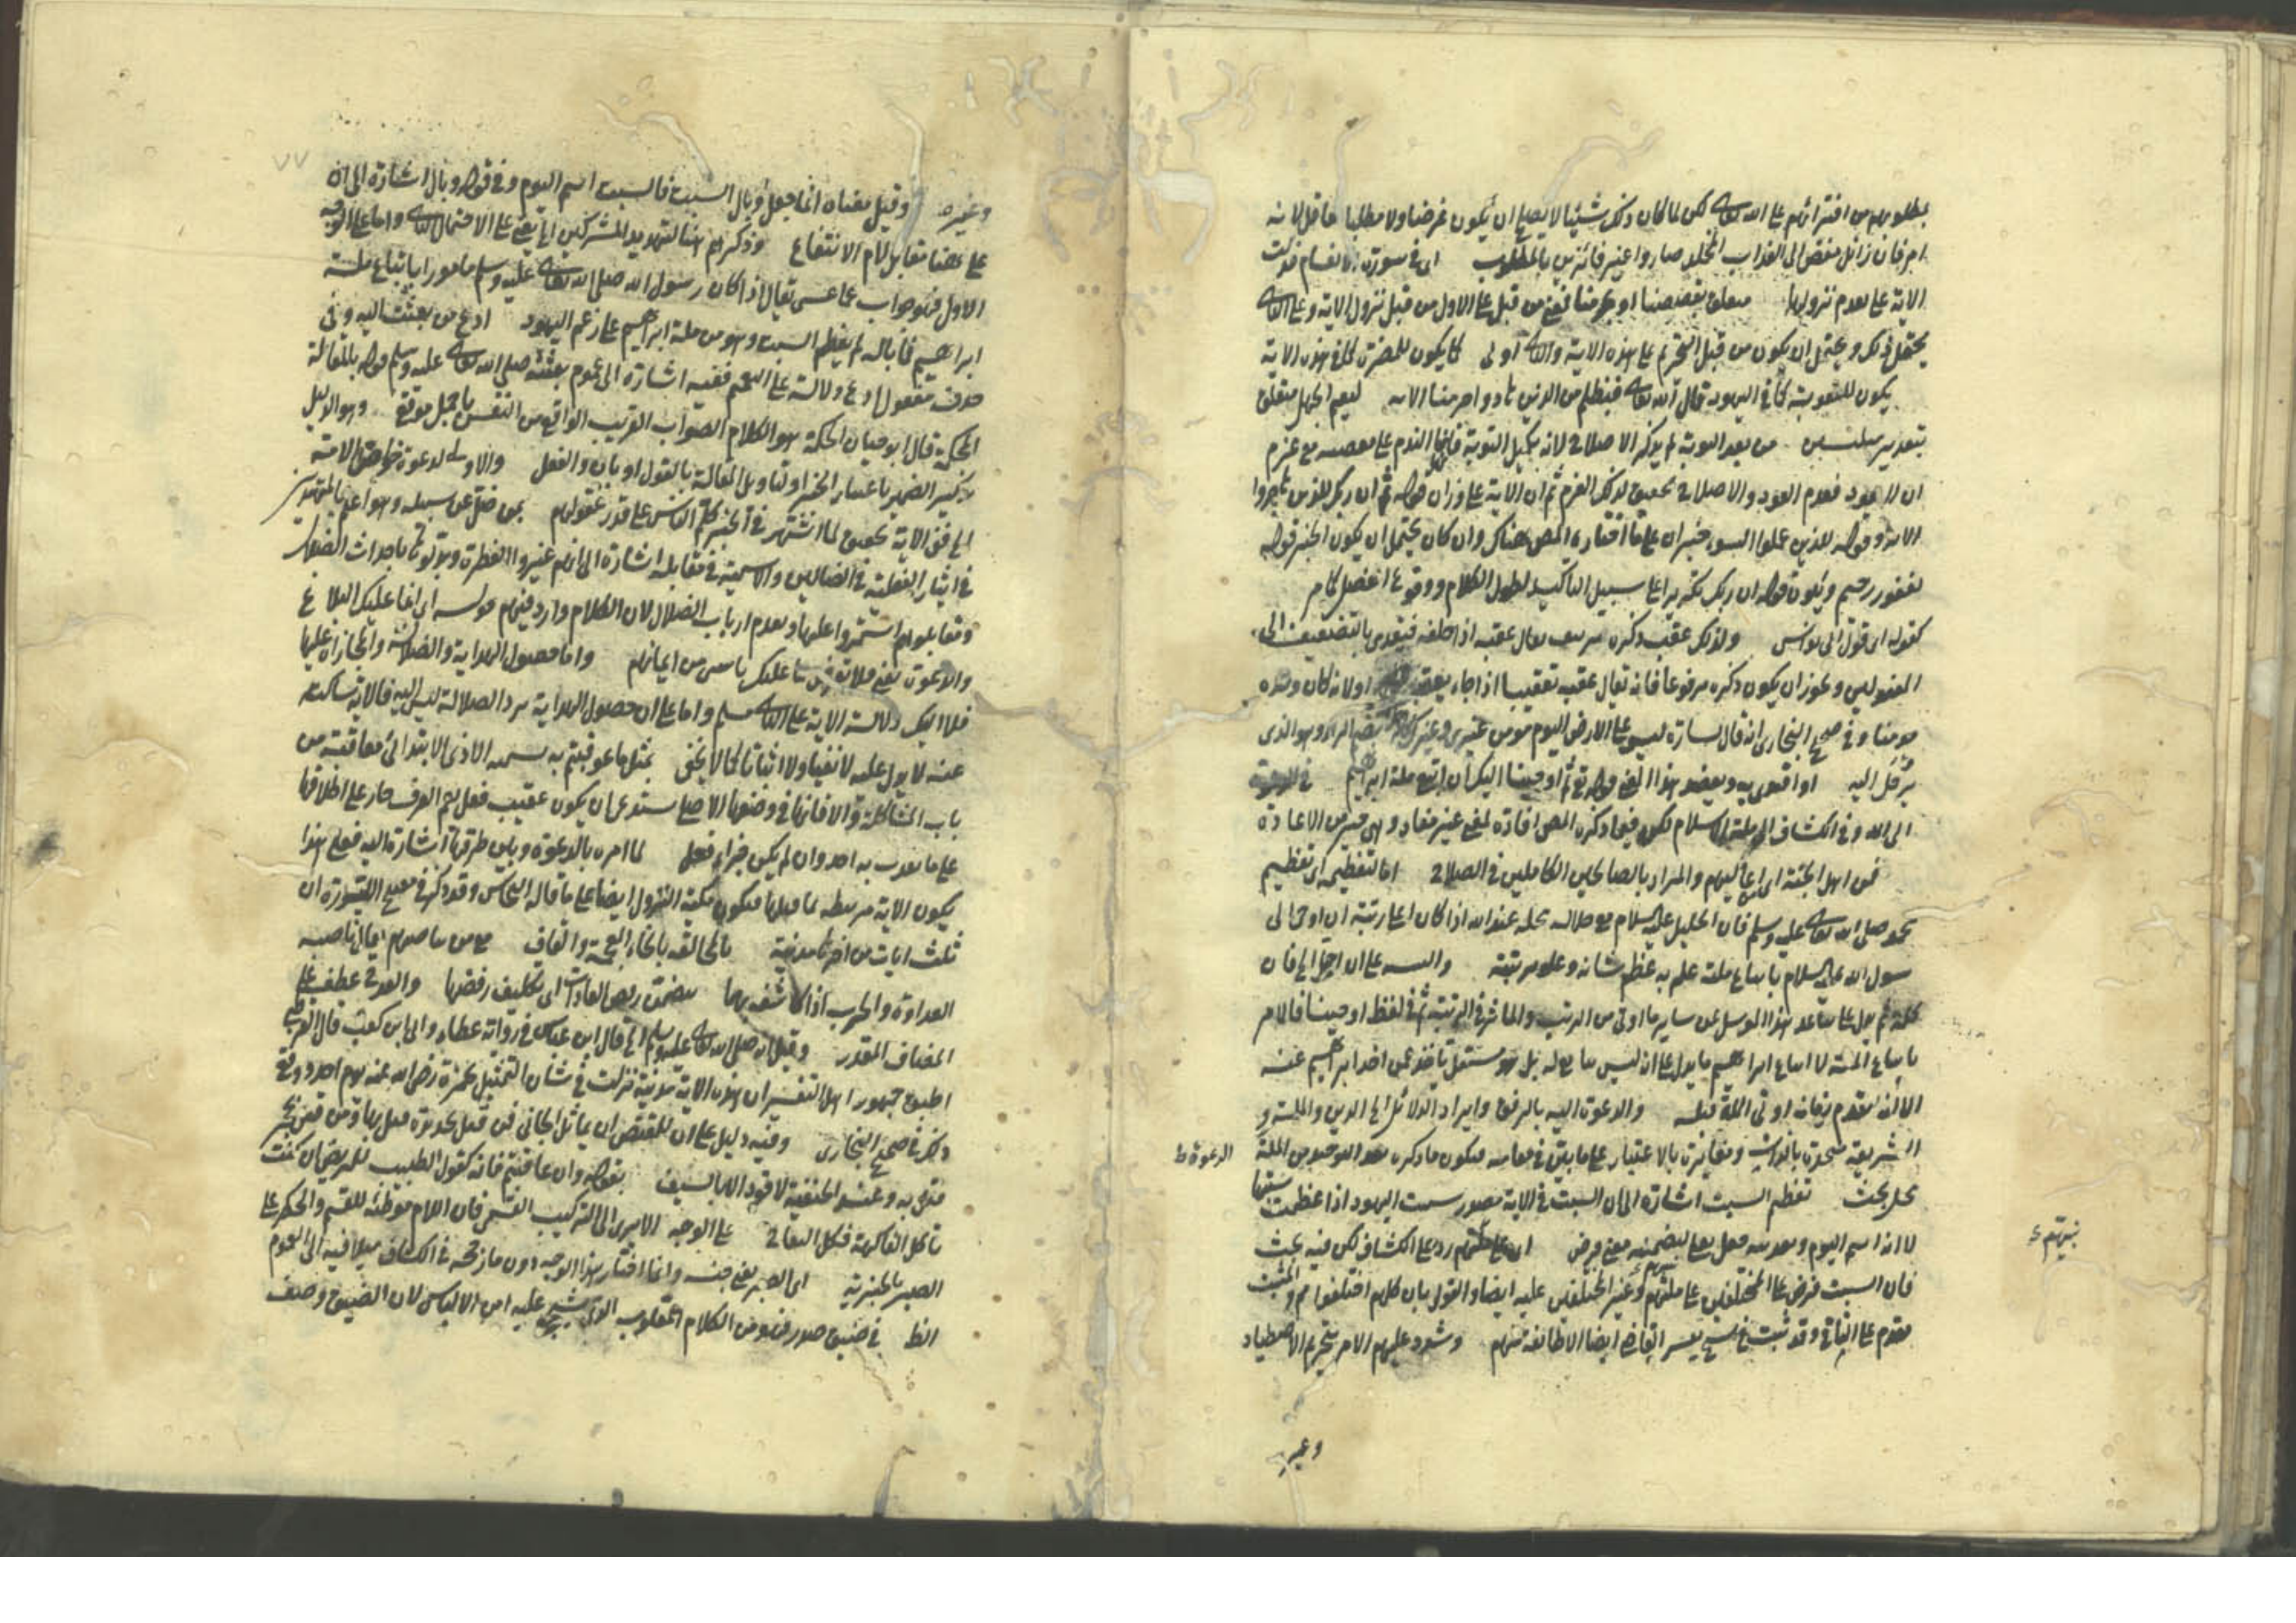 مطلوبهم من افترائهم على الله تعالى لكن لما كان ذلك شيئا لا يصلح ان يكون غرضا ولا مطلبا عاقل لانه
امر فان زائل مفض الى العذاب المخلد صاروا غير فائزين بالمطلوب اى في سورة الانعام فدلت
الاية على تقدم نزولها متعلق بقصصنا او بحرمنا فمعنى من قبل على الاول من قبل نزول الاية وعلى الثانى
يحتمل ذلك ويحتمل ان يكون من قبل التحريم على هذه الاية والثانى اولى كما يكون للمضرة كما في هذه الاية
يكون للعقوبة كما في اليهود قال الله تعالى فبظلم من الذين هادوا حرمنا الاية ليعم الجهل متعلق
بتقدير ملتبسين من بعد التوبة لم يذكر الاصلاح لانه تكميل التوبة فانها الندم على معصية مع عزم
ان لا يعود فعدم العود والاصلاح تحقيق لذلك العزم ثم ان الاية على وزان قوله ثم ان ربك للذين هاجروا
الاية وقوله للذين عملوا السوء خبر ان على ما اختاره المص هناك وان كان يحتمل ان يكون الخبر قوله
لغفور رحيم ويكون قوله ان ربك تكريرا على سبيل التأكيد لطول الكلام ووقوع الفصل كما مر
كقوله اى قول ابى نواس ولذلك عقب ذكره يقال عقبه اذا خلفه فيتعدى بالتضعيف الى
المفعولين ويجوز ان يكون ذكره مرفوعا فانه يقال عقبه تعقيبا اذا جاء بعقبه او لانه كان وحده
مومنا وفي صحيح البخارى انه قال لسارة ليس على الارض اليوم مومن غيرى وغيرك بضم الراء وهو الذى
يرحل اليه او اقتدى به ويعضد هذا المعنى قوله ثم اوحينا اليك ان اتبع ملة ابراهيم في الدعوة
الى الله وفي الكشاف الى ملة الاسلام لكن فيما ذكره المص افادة لمعنى غير مفاد وهى خير من الاعادة
فمن اهل الجنة اى اعاليهم والمراد بالصالحين الكاملين في الصلاح اما لتعظيم اى تعظيم
محمد صلى الله تعالى عليه وسلم فان الخليل عليه السلام مع جلالة محله عند الله اذا كان اعلى رتبة ان اوحى الى
رسول الله عليه السلام باتباع ملته علم به عظم شانه وعلو مرتبته والتنبيه على ان اجل الى فان
كلمة ثم تدل على تباعد هذا الموسل عن ساير ما اوتى من الرتب والمآثر في الرتبة ثم في لفظ اوحينا فالامر
باتباع الملة لا اتباع ابراهيم ما يدل على ان ليس تابع له بل هو مستقل ياخذ عمن اخذ ابراهيم عنه
الا انه لتقدم زمانه اوتى الملة قبله والدعوة اليه بالرفق وايراد الدلائل الى الدين والملة و
الشريعة متحدة بالذات ومغايرة بالاعتبار على ما بين في مقامه فيكون ما ذكره بعد التوحيد من الملة الدعوة ط
محل بحث تعظم السبت اشارة الى ان السبت في الاية مصدر سبتت اليهود اذا عظمت سبتها
لا انه اسم اليوم وتعديته فعل بعلى لتضمينه معنى فرض اى على نبيهم رد على الكشاف لكن فيه بحث
فان السبت فرض على المختلفين على ملتهم وغير المختلفين عليه ايضا والقول بان كلهم اختلفوا مم والمثبت
مقدم على النافى وقد ثبت في تفسير القاضى ايضا الا طائفة منهم وشدد عليهم الامر بتحريم الاصطياد
وغيره
نبيهم ء
٧٧
وغيره وقيل معناه انما جعل وبال السبت فالسبت اسم اليوم وفي قوله وبال اشارة الى ان
على ههنا مقابل للام الانتفاع وذكرهم هنا لتهديد المشركين اى يعنى على الاحتمال الثانى واما على الوجه
الاول فهو جواب عما عسى يقال اذا كان رسول الله صلى الله تعالى عليه وسلم مامورا باتباع ملة
ابراهيم فما باله لم يعظم السبت وهو من ملة ابراهيم على زعم اليهود ادع من بعثت اليه وفي
حذف مفعول ادع دلالة على التعميم ففيه اشارة الى عموم بعثته صلى الله تعالى عليه وسلم قوله بالمقالة
المحكمة قال ابو حيان الحكمة هو الكلام الصواب القريب الواقع من النفس باجمل موقع وهو الدليل
تذكير الضمير باعتبار الخبر او لتاويل المقالة بالقول او بان والفعل والاولى لدعوة خواص الامة
الى في الاية تحقيق لما اشتهر في الخبر كلم الناس على قدر عقولهم بمن ضل عن سبيله وهو اعلم بالمهتدين
في ايثار الفعلية في الضالين والاسمية في مقابله اشارة الى انهم غيروا الفطرة وبدلوها باحداث الضلال
ومقابلوهم استمروا عليها وتقدم ارباب الضلال لان الكلام وارد فيهم قوله اى انما عليك البلاغ
والدعوة يعنى فلا تعرض ما عليك يأس من ايمانهم واما حصول الهداية والضلال والمجازاة عليها
فلا اليك دلالة الاية على الثانى مسلم واما على ان حصول الهداية والضلالة ليس اليه فالاية ساكتة
عنه لا يدل عليه لا نفيا ولا اثباتا كما لا يخفى بمثل ما عوقبتم به سمى الاذى الابتدائى معاقبة من
باب المشاكلة والا فانها في وضعها الاصلى تستدعى ان يكون عقيب فعل نعم العرف جار على اطلاقها
على ما يعذب به احد وان لم يكن جزاء فعل لما امره بالدعوة وبين طرقها اشارة اليه فعلى هذا
يكون الاية مرتبطة لما قبلها فيكون مكية النزول ايضا على ما قاله النحاس وقد ذكر في مفتتح السورة ان
ثلث ايات من اخرها مدنية بالمخالفة بالخاء المعجمة والقاف مع من يناصبهم يقال ناصبه
العداوة والحرب اذا كاشفه بهما يتضمن رفض العادات اى تكليف رفضها والقدح عطف على
المضاف المقدر وقيل انه صلى الله تعالى عليه وسلم الخ قال ابن عباس في رواية عطاء وابى بن كعب قال القرطبى
اطبق جمهور اهل التفسير ان هذه الاية مدنية نزلت في شان التمثيل بحمزة رضى الله عنه يوم احد ووقع
ذلك في صحيح البخارى وفيه دليل على ان للمقتص ان يماثل الجانى فمن قتل بحديدة قتل بها ومن قتل بحجر
قتل به وعند الحنفية لا قود الا بالسيف بقوله وان عاقبتم فانه كقول الطبيب للمريض ان كنت
تاكل الفاكهة فكل التفاح على الوجه الاكد الى التركيب القسمى فان اللام موطئة للقسم والحكم على
الصبر بالخيرية اى الصبر يعنى جنسه وانما اختار هذا الوجه دون ما رجحه في الكشاف ميلا فيه الى العموم
الظ في ضيق صدر فهو من الكلام المقلوب الذى يشجع عليه امن الالباس لان الضيق وصف